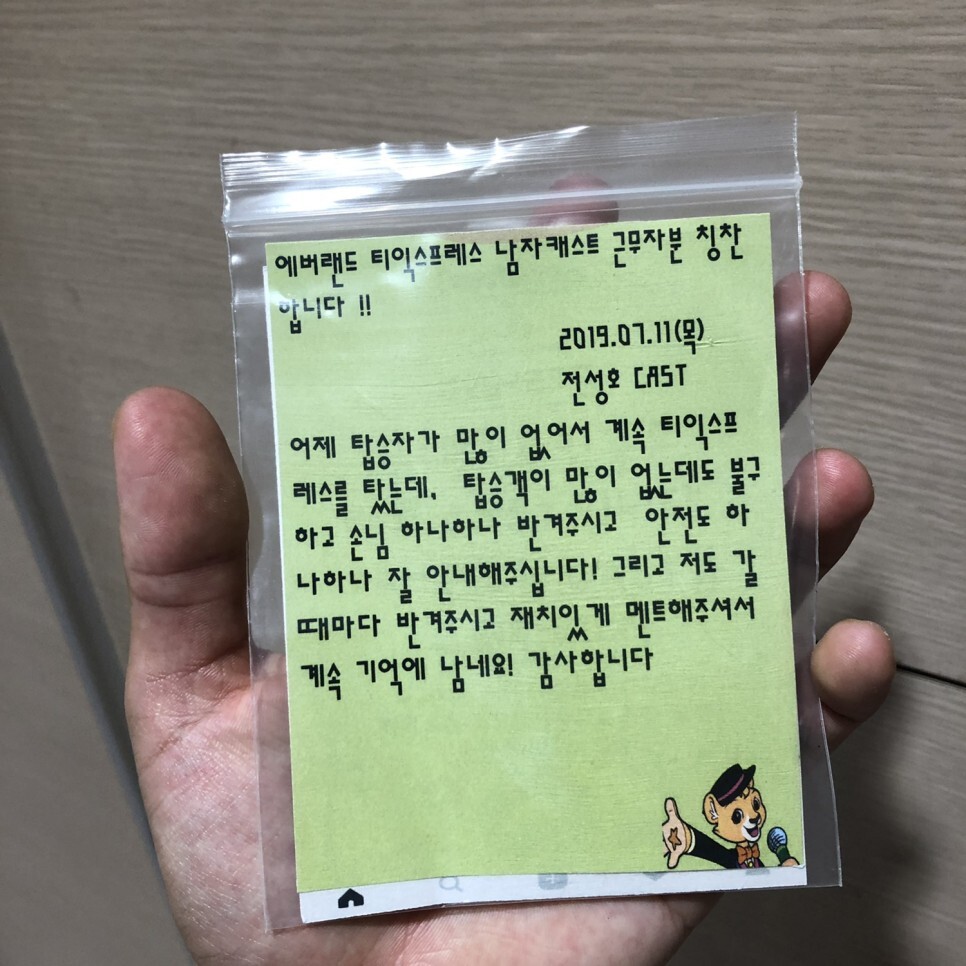 에버랜드 티익스프레스 남자캐스트 근무자분 칭찬
합니다 !!
2019.07.11(목)
전성호 CAST
어제 탑승자가 많이 없어서 계속 티익스프
레스를 탔는데, 탑승객이 많이 없는데도 불구
하고 손님 하나하나 반겨주시고 안전도 하
나하나 잘 안내해주십니다! 그리고 저도 갈
때마다 반겨주시고 재치있게 멘트해주셔서
계속 기억에 남네요! 감사합니다